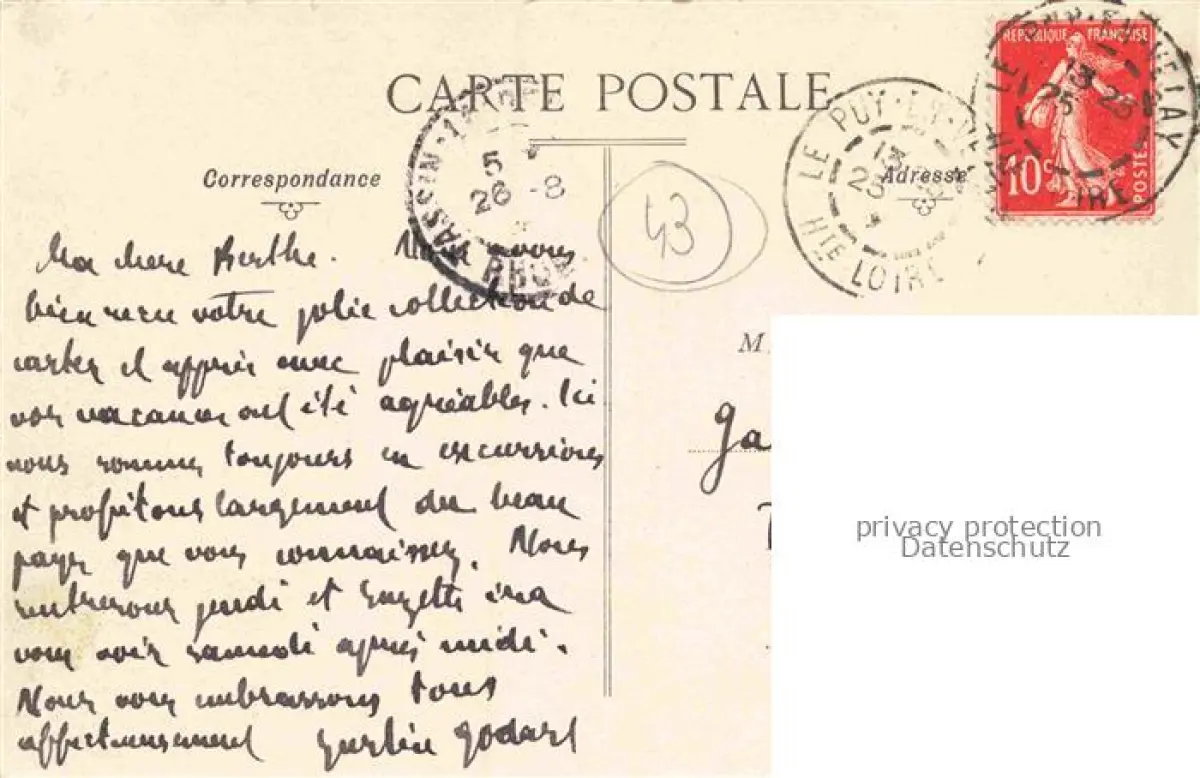 CARTE POSTALE
Correspondance
Adresse
REPUBLIQUE FRANÇAISE
10c
POSTES
LE PUY-EN-VELAY
13
25
HTE LOIRE
LE PUY-EN-VELAY
13
25
26-8
HTE LOIRE
TASSIN-
5
26-8
RHONE
43
Ma chere Berthe. Nous avons
bien recu votre jolie collection de
cartes et appris avec plaisir que
vos vacances ont été agréables. Ici
nous sommes toujours en excursions
et profitons largement du beau
pays que vous connaissez. Nous
rentrerons jeudi et Suzette ira
vous voir samedi après midi.
Nous vous embrassons tous
affectueusement Godart
M
Ga
privacy protection
Datenschutz